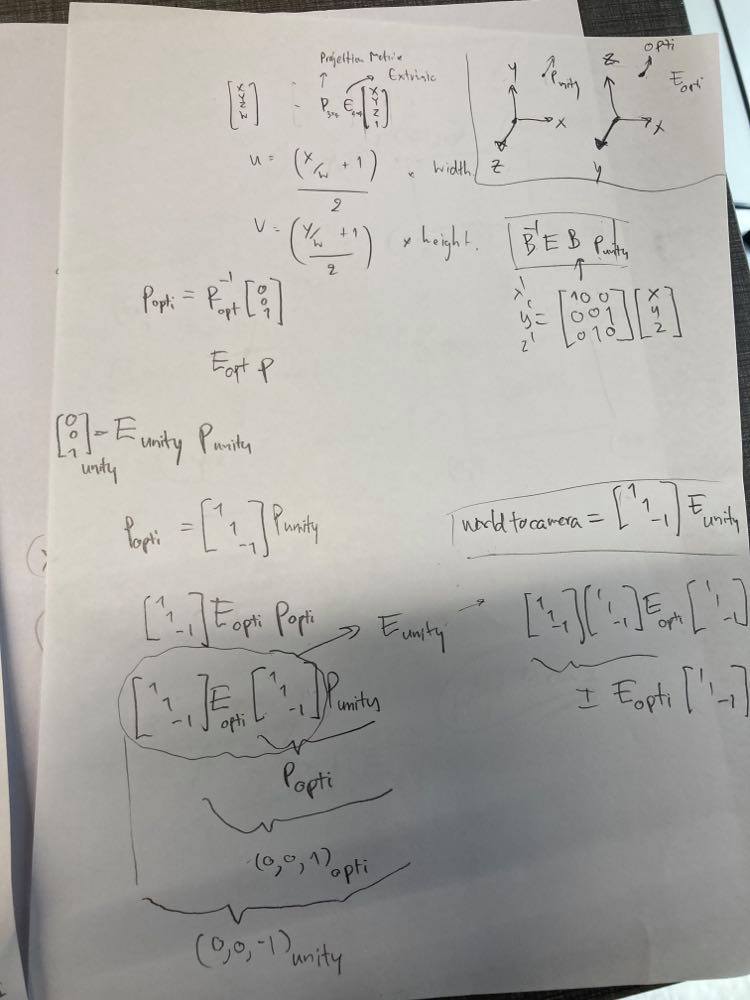 Projection Matrix
Extrinsic
[X Y Z W] = P₃ₓ₄ E₄ₓ₄ [X Y Z 1]
u = (X/w + 1) / 2 × width
V = (Y/w + 1) / 2 × height.
Y Punity X Z
Z opti Eopti X Y
B⁻¹ E B Punity
x' y' z' = [1 0 0; 0 0 1; 0 1 0] [x y z]
Popti = P⁻¹opt [0 0 1]
Eopt P
[0 0 1]unity = Eunity Punity
Popti = [1 1 -1] Punity
world to camera = [1 1 -1] Eunity
[1 1 -1] Eopti Popti
Eunity → [1 1 -1] [1 1 -1] Eopti [1 1 -1]
[1 1 -1] Eopti [1 1 -1] Punity
I Eopti [1 1 -1]
Popti
(0,0,1)opti
(0,0,-1)unity